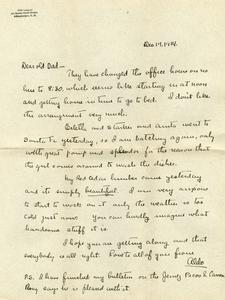 Dec 17, 1914.
Dear old Dad—
They have changed the office hours on us
here to 8:30, which seems like starting in at noon
and getting home in time to go to bed. I don't like
the arrangement very much.
and aunts went to
Santa Fe yesterday, so I am batching again, only
with great pomp and splendor for the reason that
the girl comes around to wash the dishes.
My Red cedar lumber came yesterday
and it's simply beautiful. I am very anxious
to start to work on it, only the weather is too
cold just now. You can hardly imagine what
handsome stuff it is.
I hope you are getting along and that
everything is all right. Love to all of you from
Aldo
P.S. I have finished my bulletin on the Jemez, Pecos &
Ring says he is pleased with it.